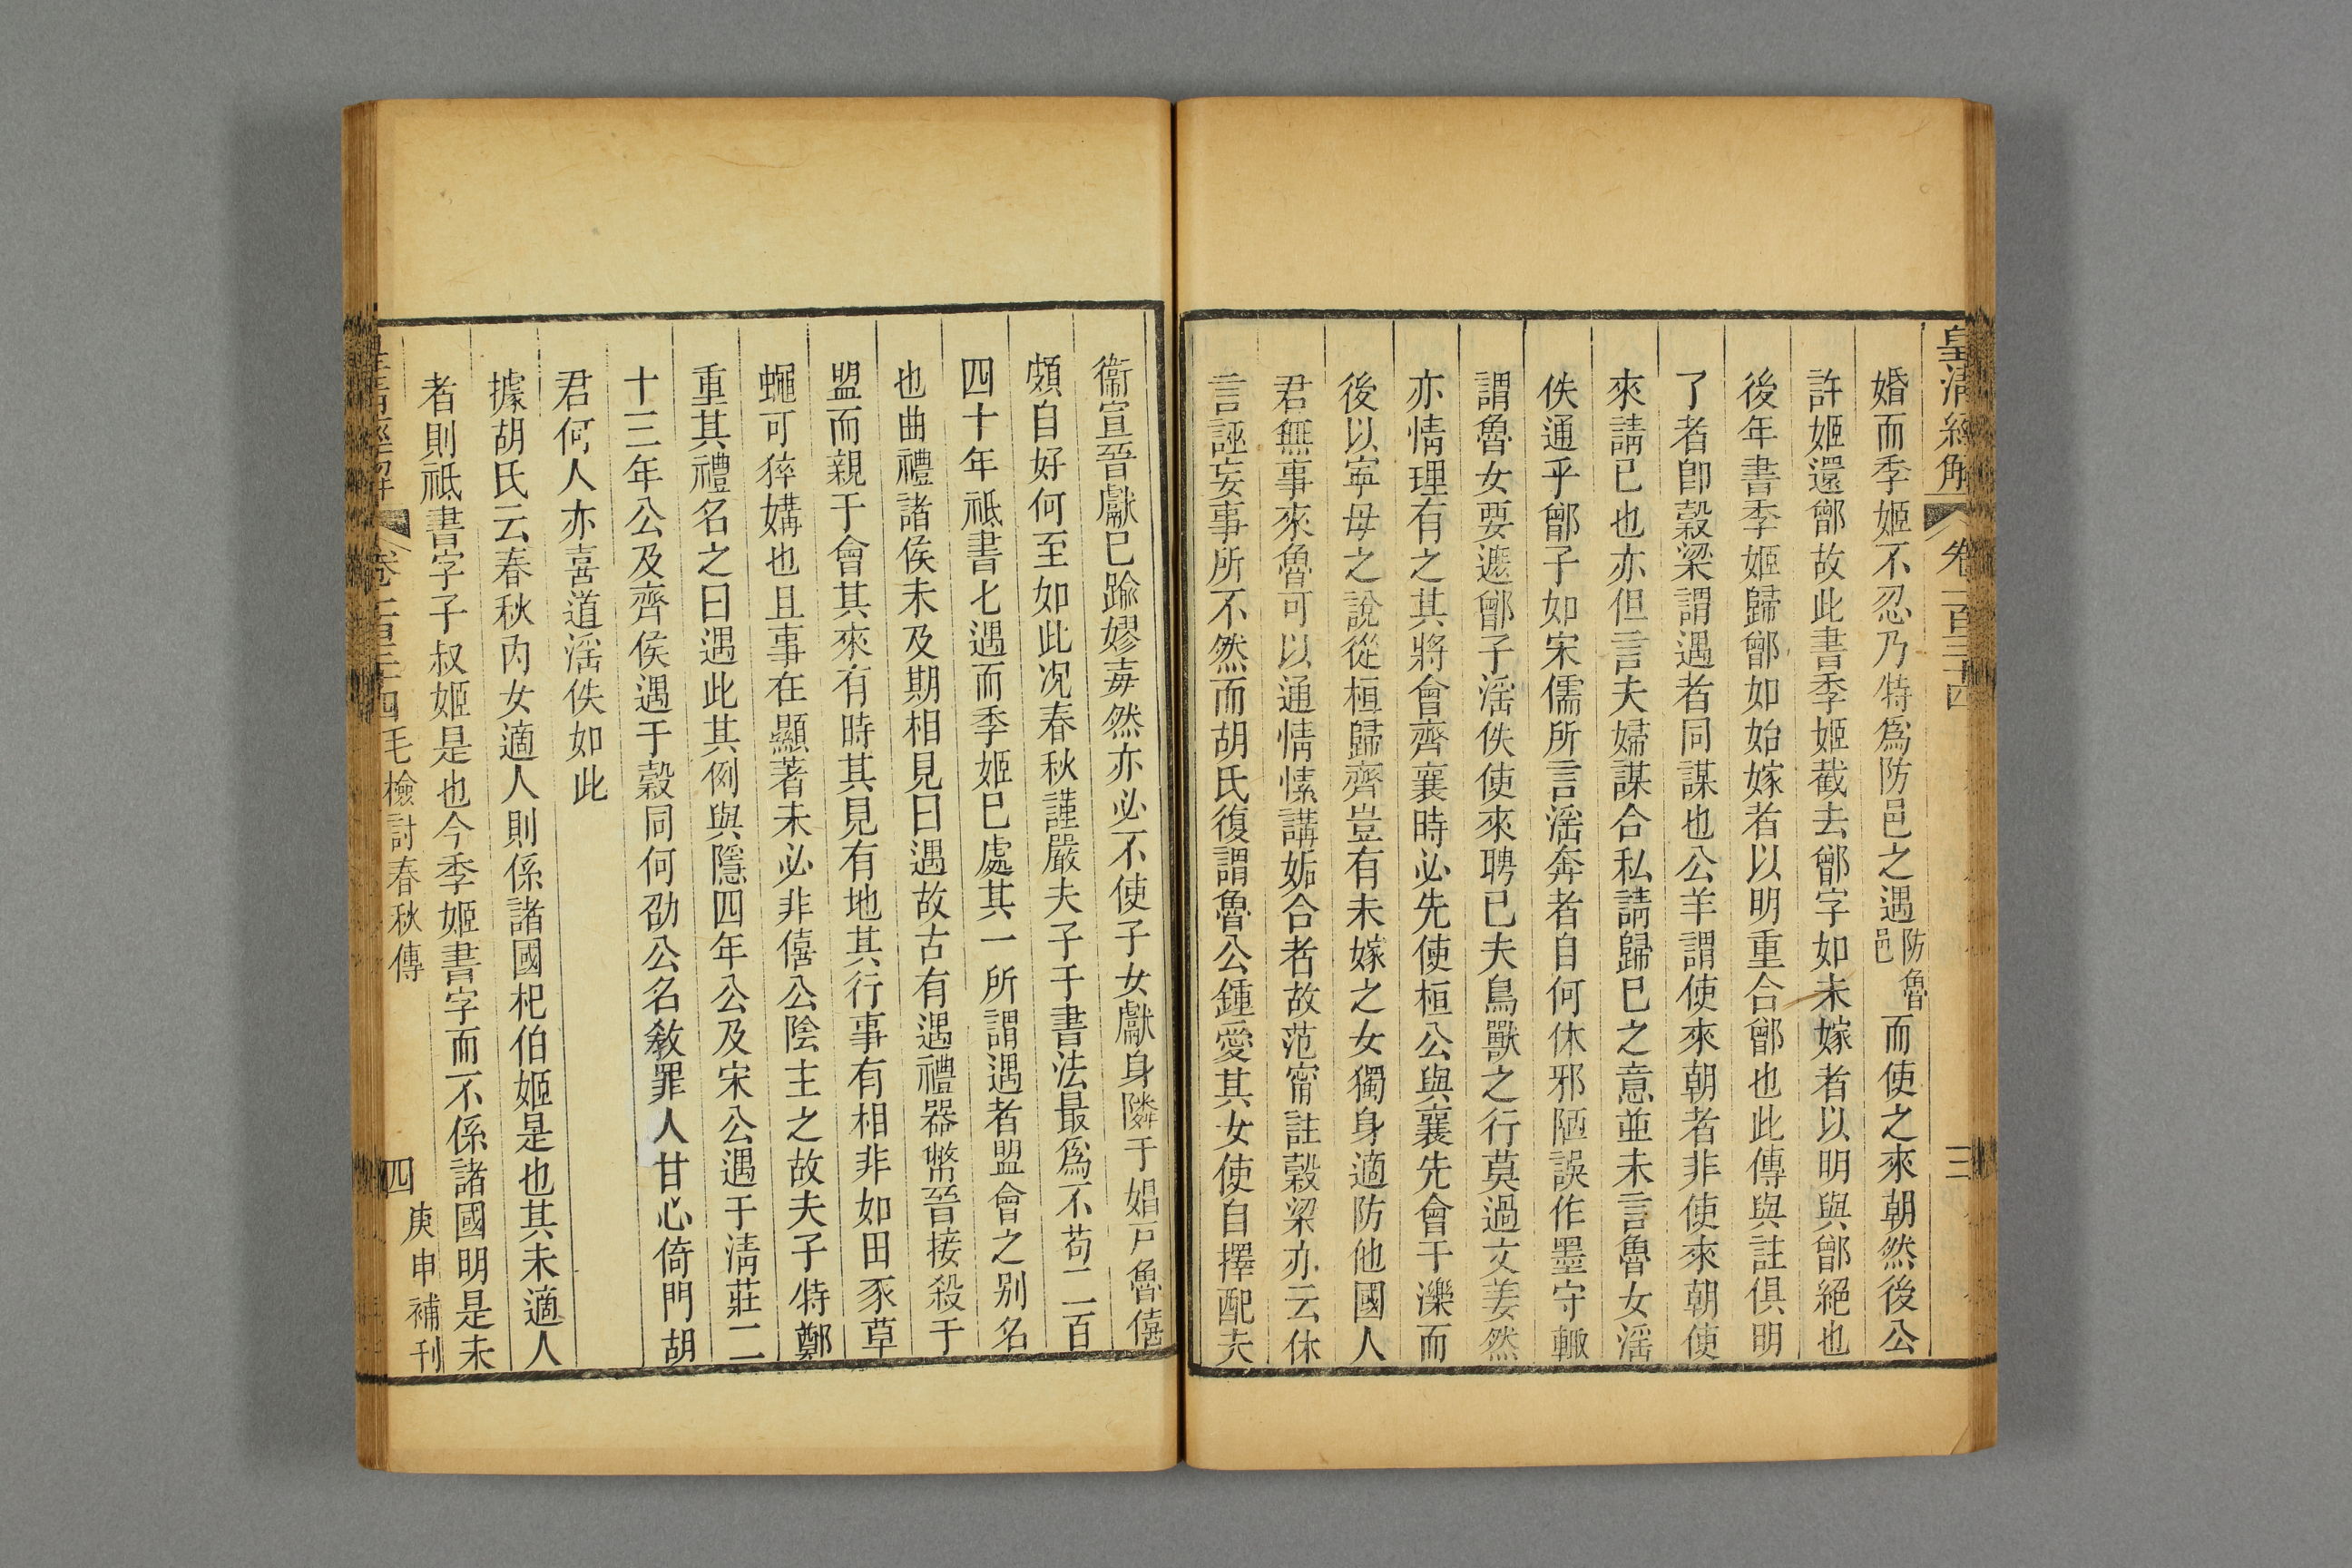 皇清經解 卷一百三十四 三
婚而季姬不忍乃特爲防邑之遇防魯邑而使之來朝然後公
許姬還鄫故此書季姬截去鄫字如未嫁者以明與鄫絕也
後年書季姬歸鄫如始嫁者以明重合鄫也此傳與註俱明
了者卽穀梁謂遇者同謀也公羊謂使來朝者非使來朝使
來請已也亦但言夫婦謀合私請歸巳之意並未言魯女淫
佚通乎鄫子如宋儒所言淫奔者自何休邪陋誤作墨守輙
謂魯女要遮鄫子淫佚使來聘已夫鳥獸之行莫過文姜然
亦情理有之其將會齊襄時必先使桓公與襄先會于濼而
後以寧母之說從桓歸齊豈有未嫁之女獨身適防他國人
君無事來魯可以通情愫講姤合者故范甯註穀梁亦云休
言誣妄事所不然而胡氏復謂魯公鍾愛其女使自擇配夫
衞宣晉獻巳踰嫪毐然亦必不使子女獻身隣于娼戸魯僖
頗自好何至如此况春秋謹嚴夫子于書法最爲不苟二百
四十年祗書七遇而季姬巳處其一所謂遇者盟會之别名
也曲禮諸侯未及期相見曰遇故古有遇禮器幣晉接殺于
盟而親于會其來有時其見有地其行事有相非如田豕草
蠅可猝媾也且事在顯著未必非僖公陰主之故夫子特鄭
重其禮名之曰遇此其例與隱四年公及宋公遇于淸莊二
十三年公及齊侯遇于穀同何劭公名敎罪人甘心倚門胡
君何人亦喜道淫佚如此
據胡氏云春秋內女適人則係諸國杞伯姬是也其未適人
者則祗書字子叔姬是也今季姬書字而不係諸國明是未
皇清經解 卷一百三十四 毛檢討春秋傳 四 庚申補刊